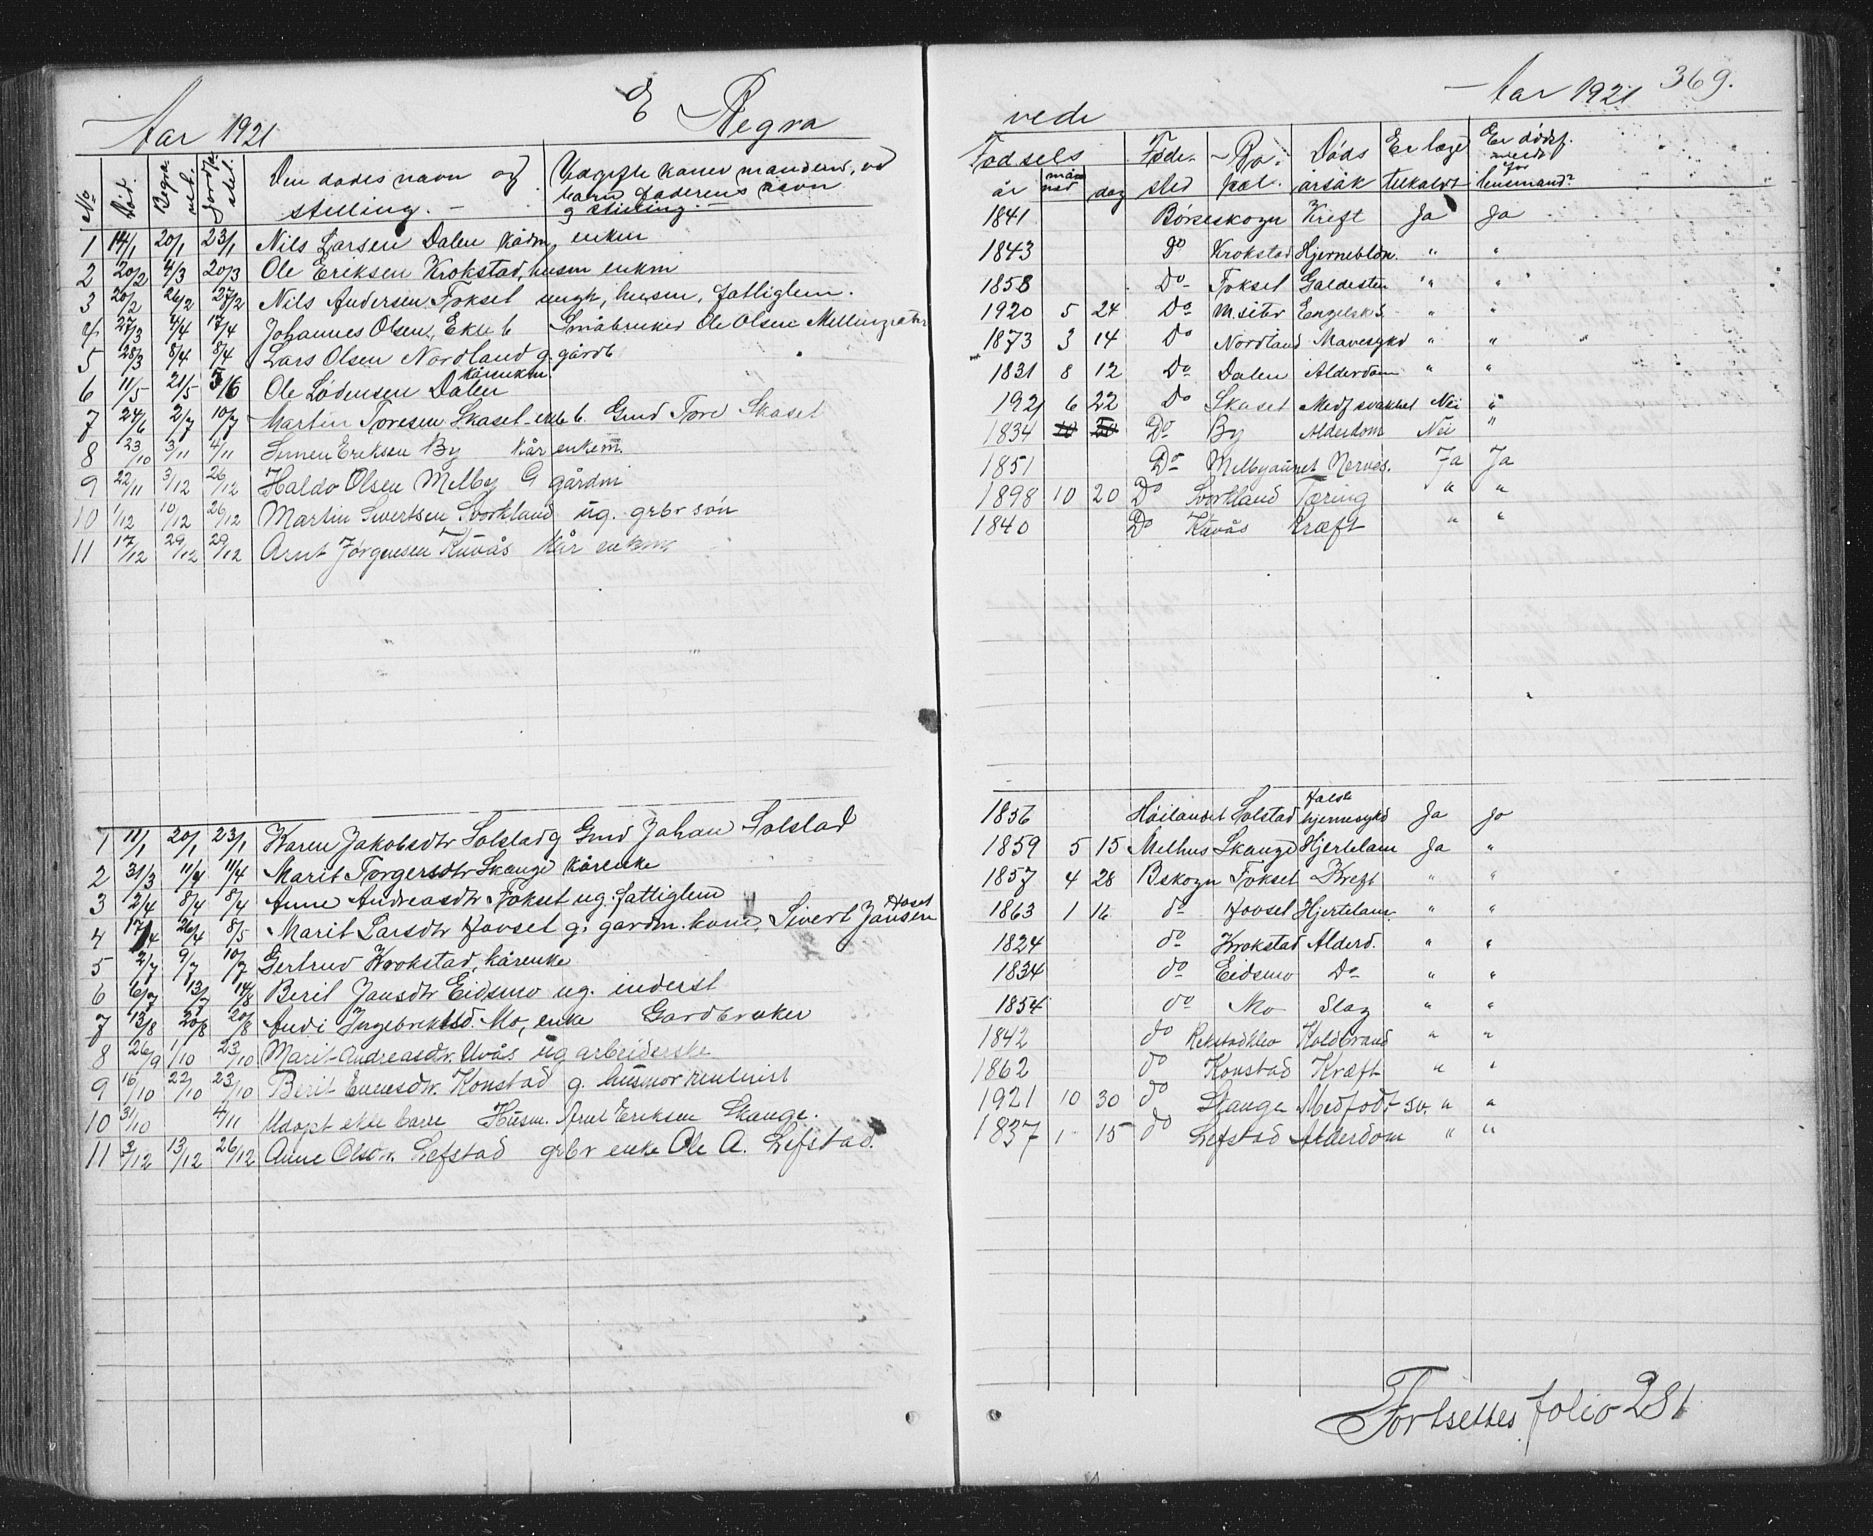 Aar 1921 E Begra
vede Aar 1921 369.
No Död. Begra vet. Jordfæstet. Den dødes navn og stilling. — Udgifte koner mandens, ved barn faderens navn og stilling —
Fodsels år måned dag Føde- sted Bo- pæl. Døds årsak Er læge tilkaldt Er dødsf. meldt for lensmand?
1 14/1 20/1 23/1 Nils Larsen Dalen Kårm, enkem 1841 Börseskogn Kreft Ja Ja
2 20/2 4/3 20/3 Ole Eriksen Krokstad, husm enkm 1843 do Krokstad Hjerneblön " "
3 20/2 26/2 27/2 Nils Andersen Foksel ungk, husm, fattiglem. 1858 Do Foksel Galdesten " "
4 27/3 4/4 17/4 Johannes Olsen, Ekte b Småbruker Ole Olsen Mellingsæter 1920 5 24 Do M.sæter Engelsk S. " "
5 28/3 8/4 8/4 Lars Olsen Nordland g. gårdb 1873 3 14 Do Nordland Mavesykd " "
6 11/5 21/5 5/6 Ole Lødensen Dalen kårenkm. 1831 8 12 Do Dalen Alderdom " "
7 24/6 2/7 10/7 Martin Toresen Skaset ekte b. Gmd Tore Skaset 1921 6 22 Do Skaset Medf svakhet Nei "
8 23/10 3/11 4/11 Simen Eriksen By kår enkem 1834 Do By Alderdom Nei "
9 22/11 3/12 26/12 Haldo Olsen Melby G gårdm 1851 Do Melbyaunet Nerves. Ja Ja
10 1/12 10/12 26/12 Martin Sivertsen Svorkland ug. grbr sön 1898 10 20 Do Svorkland Tæring " "
11 17/12 29/12 29/12 Arnt Jørgensen Kuvås Kår enkm 1840 Do Kuvås Kræft " "
1 11/1 20/1 23/1 Karen Jakobsdtr Solstad g Gmd Johan Solstad 1856 Høilandet Solstad Halsk hjernesykd Ja Ja
2 31/3 11/4 11/4 Marit Torgersdtr Skauge Kårenke 1859 5 15 Melhus Skauge Hjertelam Ja "
3 2/4 8/4 8/4 Anne Andreasdtr Foksel ug. fattiglem 1857 4 28 Bskogn Foksel Kreft " "
4 17/4 26/4 8/5 Marit Larsdtr Hovsel g. gardm. kone, Sivert Jansen 1863 1 16 do Hovsel Hjertelam. " "
5 2/7 9/7 10/7 Gertrud Krokstad, kårenke 1824 do Krokstad Alderd. " "
6 6/7 13/7 14/8 Beril Jansdtr Eidsmo ug. inderst 1834 do Eidsmo Do " "
7 13/8 20/8 20/8 Andi Ingebrektsd. Mo, enke Gardbruker 1854 do Mo Slag " "
8 26/9 1/10 23/10 Marit Andreasdtr. Uvås ug arbeiderske 1842 do Rekstadklev Koldbrand " "
9 16/10 22/10 23/10 Berit Evensdtr. Konstad g. husmor 1862 do Konstad Kræft " "
10 31/10 4/11 Udøpt ekte barn Husm. Arnt Eriksen Skauge. 1921 10 30 do Skauge Medfødt sv. " "
11 3/12 13/12 26/12 Anne Olsdtr. Lefstad grbr enke Ole A. Lefstad. 1837 1 15 do Lefstad Alderdom " "
Fortsettes folio 281